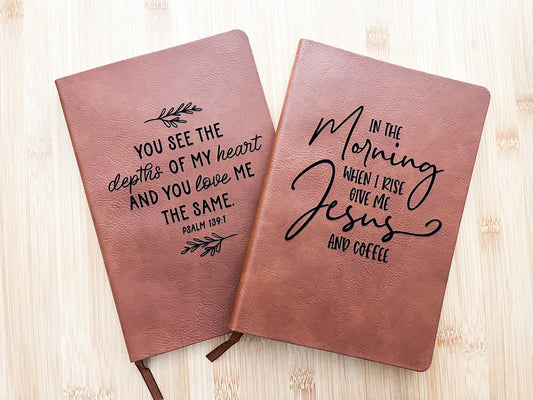 YOU SEE THE
depths OF MY heart
AND YOU love ME
THE SAME.
PSALM 139:1
IN THE
Morning
WHEN I RISE
GIVE ME
Jesus
AND COFFEE